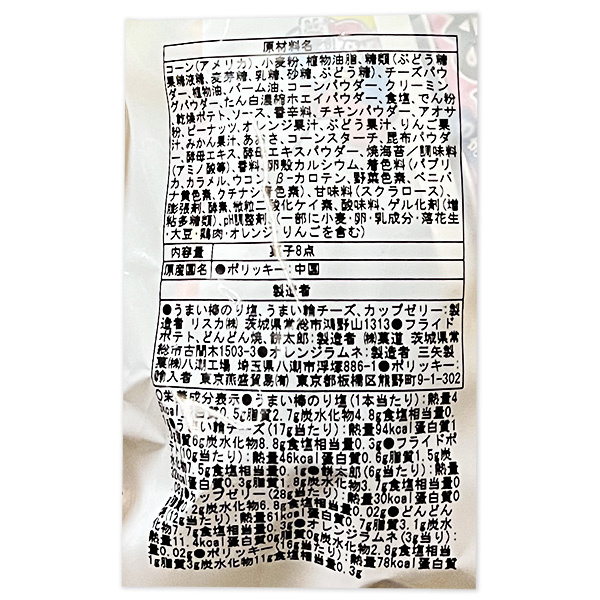 原材料名
コーン(アメリカ)、小麦粉、植物油脂、糖類(ぶどう糖
果糖液糖、麦芽糖、乳糖、砂糖、ぶどう糖)、チーズパウ
ダー、植物油、パーム油、コーンパウダー、クリーミン
グパウダー、たん白濃縮ホエイパウダー、食塩、でん粉
、乾燥ポテト、ソース、香辛料、チキンパウダー、アオサ
粉、ピーナッツ、オレンジ果汁、ぶどう果汁、りんご果
汁、みかん果汁、あおさ、コーンスターチ、昆布パウダ
ー、酵母エキス、酵母エキスパウダー、焼海苔/調味料
(アミノ酸等)、香料、卵殻カルシウム、着色料(パプリ
カ、カラメル、ウコン、β-カロテン、野菜色素、ベニバ
ナ黄色素、クチナシ青色素)、甘味料(スクラロース)、
膨張剤、酵素、微粒二酸化ケイ素、酸味料、ゲル化剤(増
粘多糖類)、pH調整剤、(一部に小麦・卵・乳成分・落花生
・大豆・鶏肉・オレンジ・りんごを含む)
内容量 菓子8点
原産国名 ●ポリッキー:中国
製造者
●うまい棒のり塩、うまい輪チーズ、カップゼリー:製
造者 リスカ㈱ 茨城県常総市鴻野山1313●フライド
ポテト、どんどん焼、餅太郎:製造者 ㈱菓道 茨城県常
総市古間木1503-3●オレンジラムネ:製造者 三矢製
菓㈱八潮工場 埼玉県八潮市浮塚886-1●ポリッキー:
輸入者 東京燕盛貿易㈲ 東京都板橋区熊野町9-1-302
○栄養成分表示●うまい棒のり塩(1本当たり):熱量4
0.5g脂質2.7g炭水化物4.8g食塩相当量0.
●うまい輪チーズ(17g当たり):熱量94kcal蛋白質1
脂質6g炭水化物8.8g食塩相当量0.3g●フライドポ
(10g当たり):熱量46kcal蛋白質0.6g脂質1.5g炭
食塩相当量0.1g●餅太郎(6g当たり):熱量
脂質1.8g炭水化物3.7g食塩相当量0.
カップゼリー(28g当たり):熱量30kcal蛋白質0
炭水化物6.8g食塩相当量0.02g●どんどん
当たり):熱量61kcal蛋白質0.7g脂質3.1g炭水
7.7g食塩相当量0.3g●オレンジラムネ(3g当たり):
量11.4kcal蛋白質0g脂質0g炭水化物2.8g食塩相当
量0.02g●ポリッキー(16g当たり):熱量78kcal蛋白質
1g脂質3g炭水化物11g食塩相当量0.3g